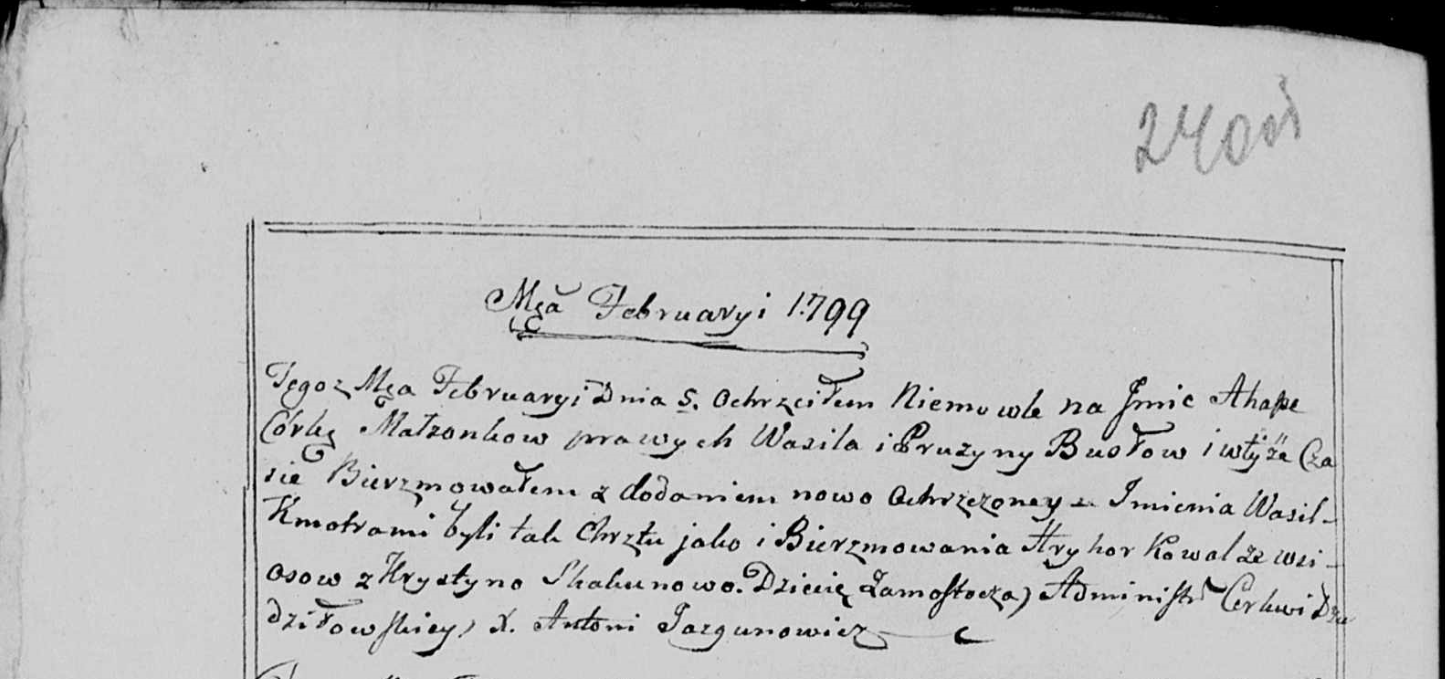 240
Mca Februaryi 1799
Tegoz Mca Februaryi Dnia 5. Ochrzciłem Niemowle na Jmie Ahape
Córkę Małzonkow prawych Wasila i Pruzyny Busłow i wtÿże Cza
sie Bierzmowałem z dodaniem nowo Ochrzczoney Imienia Wasil-
Kmotrami byli tak Chrztu jako i Bierzmowania Hryhor Kowal ze wsi
Osow z Krystyno Skakunowo. Dziecię Zamostocza) Administr Cerkwi Dzie
dziłowskiey) X. Antoni Jazgunowicz